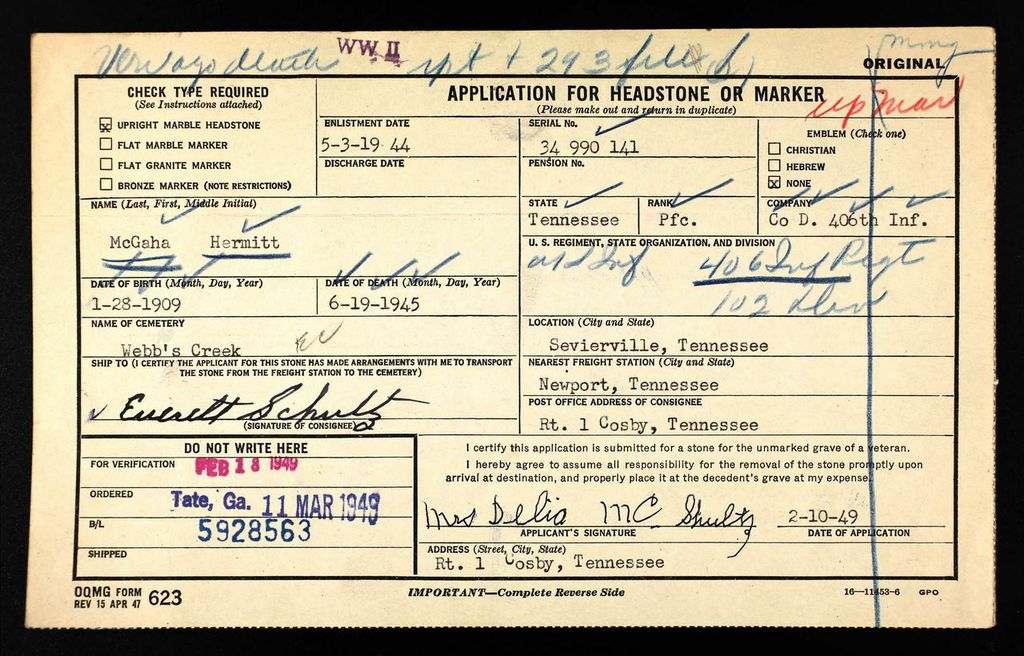 WW II
death rpt + 293 filed
ORIGINAL
CHECK TYPE REQUIRED
(See Instructions attached)
☒ UPRIGHT MARBLE HEADSTONE
☐ FLAT MARBLE MARKER
☐ FLAT GRANITE MARKER
☐ BRONZE MARKER (NOTE RESTRICTIONS)
APPLICATION FOR HEADSTONE OR MARKER
(Please make out and return in duplicate)
up Marl
ENLISTMENT DATE
5-3-19 44
DISCHARGE DATE
SERIAL No.
34 990 141
PENSION No.
EMBLEM (Check one)
☐ CHRISTIAN
☐ HEBREW
☒ NONE
NAME (Last, First, Middle Initial)
McGaha Hermitt
STATE
Tennessee
RANK
Pfc.
COMPANY
Co D. 406th Inf.
U. S. REGIMENT, STATE ORGANIZATION, AND DIVISION
Inf 406 Inf Regt
102 Div
DATE OF BIRTH (Month, Day, Year)
1-28-1909
DATE OF DEATH (Month, Day, Year)
6-19-1945
NAME OF CEMETERY
Webb's Creek
LOCATION (City and State)
Sevierville, Tennessee
SHIP TO (I CERTIFY THE APPLICANT FOR THIS STONE HAS MADE ARRANGEMENTS WITH ME TO TRANSPORT
THE STONE FROM THE FREIGHT STATION TO THE CEMETERY)
Everett Schultz
(SIGNATURE OF CONSIGNEE)
NEAREST FREIGHT STATION (City and State)
Newport, Tennessee
POST OFFICE ADDRESS OF CONSIGNEE
Rt. 1 Cosby, Tennessee
DO NOT WRITE HERE
FOR VERIFICATION
FEB 18 1949
ORDERED
Tate, Ga. 11 MAR 1949
B/L
5928563
SHIPPED
I certify this application is submitted for a stone for the unmarked grave of a veteran.
I hereby agree to assume all responsibility for the removal of the stone promptly upon
arrival at destination, and properly place it at the decedent's grave at my expense.
Mrs Delia MC Shultz
APPLICANT'S SIGNATURE
2-10-49
DATE OF APPLICATION
ADDRESS (Street, City, State)
Rt. 1 Cosby, Tennessee
OQMG FORM
REV 15 APR 47 623
IMPORTANT—Complete Reverse Side
16—11453-6 GPO